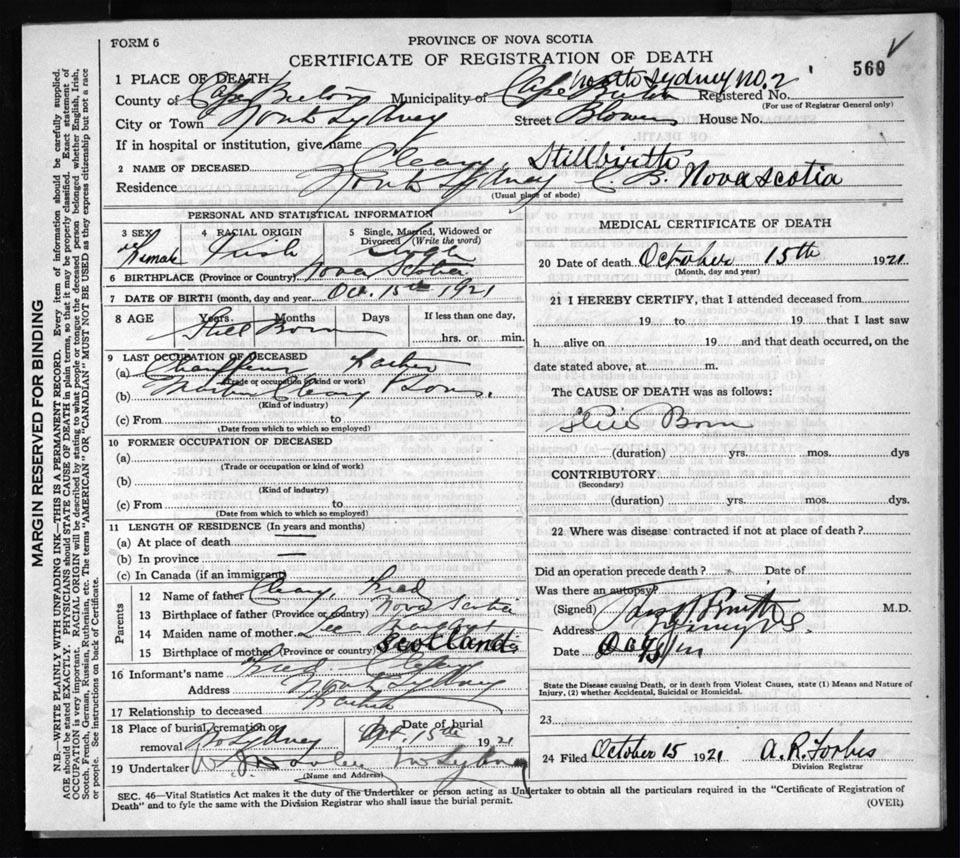 FORM 6
PROVINCE OF NOVA SCOTIA
CERTIFICATE OF REGISTRATION OF DEATH
569
1 PLACE OF DEATH North Sydney No. 2
County of Cape Breton Municipality of Cape Breton Registered No.
(For use of Registrar General only)
City or Town North Sydney Street Blowers House No.
If in hospital or institution, give name
2 NAME OF DECEASED Cleary, Stillbirth
Residence North Sydney C. B. Nova Scotia
(Usual place of abode)
PERSONAL AND STATISTICAL INFORMATION
3 SEX Female
4 RACIAL ORIGIN Irish
5 Single, Married, Widowed or Divorced (Write the word) Single
6 BIRTHPLACE (Province or Country) Nova Scotia
7 DATE OF BIRTH (month, day and year Oct. 15th 1921
8 AGE Years Months Days If less than one day,
Still Born hrs. or min.
9 LAST OCCUPATION OF DECEASED
(a) Chauffeur Father
(Trade or occupation or kind of work)
(b) Cleary & Son
(Kind of industry)
(c) From to
(Date from which to which so employed)
10 FORMER OCCUPATION OF DECEASED
(a)
(Trade or occupation or kind of work)
(b)
(Kind of industry)
(c) From to
(Date from which to which so employed)
11 LENGTH OF RESIDENCE (In years and months)
(a) At place of death —
(b) In province —
(c) In Canada (if an immigrant)
Parents
12 Name of father Cleary, Fred
13 Birthplace of father (Province or Country) Nova Scotia
14 Maiden name of mother Lee Margaret
15 Birthplace of mother (Province or country) Scotland
16 Informant's name Fred Cleary
Address North Sydney
17 Relationship to deceased Father
18 Place of burial, cremation or removal No Sydney Date of burial Oct. 15th 1921
19 Undertaker No Sydney
(Name and Address)
MEDICAL CERTIFICATE OF DEATH
20 Date of death October 15th 1921
(Month, day and year)
21 I HEREBY CERTIFY, that I attended deceased from
19 to 19 that I last saw
h alive on 19 and that death occurred, on the
date stated above, at m.
The CAUSE OF DEATH was as follows:
Still Born
(duration) yrs. mos. dys
CONTRIBUTORY
(Secondary)
(duration) yrs. mos. dys.
22 Where was disease contracted if not at place of death?
Did an operation precede death? Date of
Was there an autopsy?
(Signed) Smith M.D.
Address
Date Oct
State the Disease causing Death, or in death from Violent Causes, state (1) Means and Nature of
Injury, (2) whether Accidental, Suicidal or Homicidal.
23
24 Filed October 15 1921 A. R. Forbes
Division Registrar
SEC. 46—Vital Statistics Act makes it the duty of the Undertaker or person acting as Undertaker to obtain all the particulars required in the "Certificate of Registration of
Death" and to fyle the same with the Division Registrar who shall issue the burial permit.
(OVER)
MARGIN RESERVED FOR BINDING
N.B.—WRITE PLAINLY WITH UNFADING INK—THIS IS A PERMANENT RECORD. Every item of information should be carefully supplied.
AGE should be stated EXACTLY. PHYSICIANS should STATE CAUSE OF DEATH in plain terms, so that it may be properly classified. Exact statement of
OCCUPATION is very important. RACIAL ORIGIN will be described by stating to what people or tongue the deceased person belonged, whether English, Irish,
Scotch, French, German, Russian, Ruthenian, etc. The terms "AMERICAN" OR "CANADIAN" MUST NOT BE USED as they express citizenship but not a race
or people. See instructions on back of Certificate.